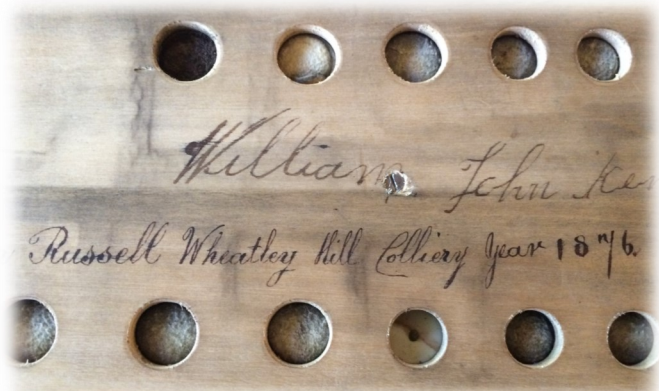 William John
Russell Wheatley Hill Colliery Year 1876.